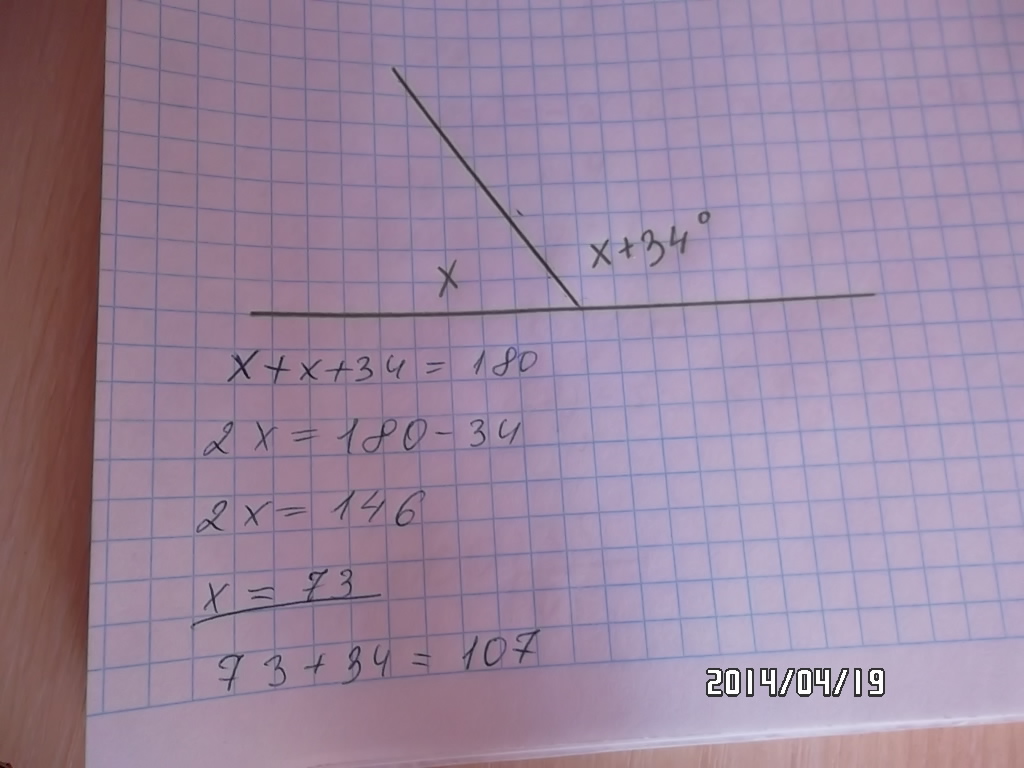 x
x+34°
x+x+34 = 180
2x = 180-34
2x = 146
x = 73
73+34 = 107
2014/04/19